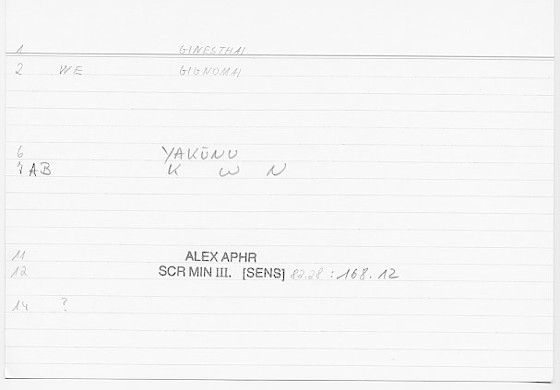 1 GINESTHAI
2 WE GIGNOMAI
6 YAKŪNU
7 AB K W N
11 ALEX APHR
12 SCR MIN III. [SENS] 82.28 : 168.12
14 ?